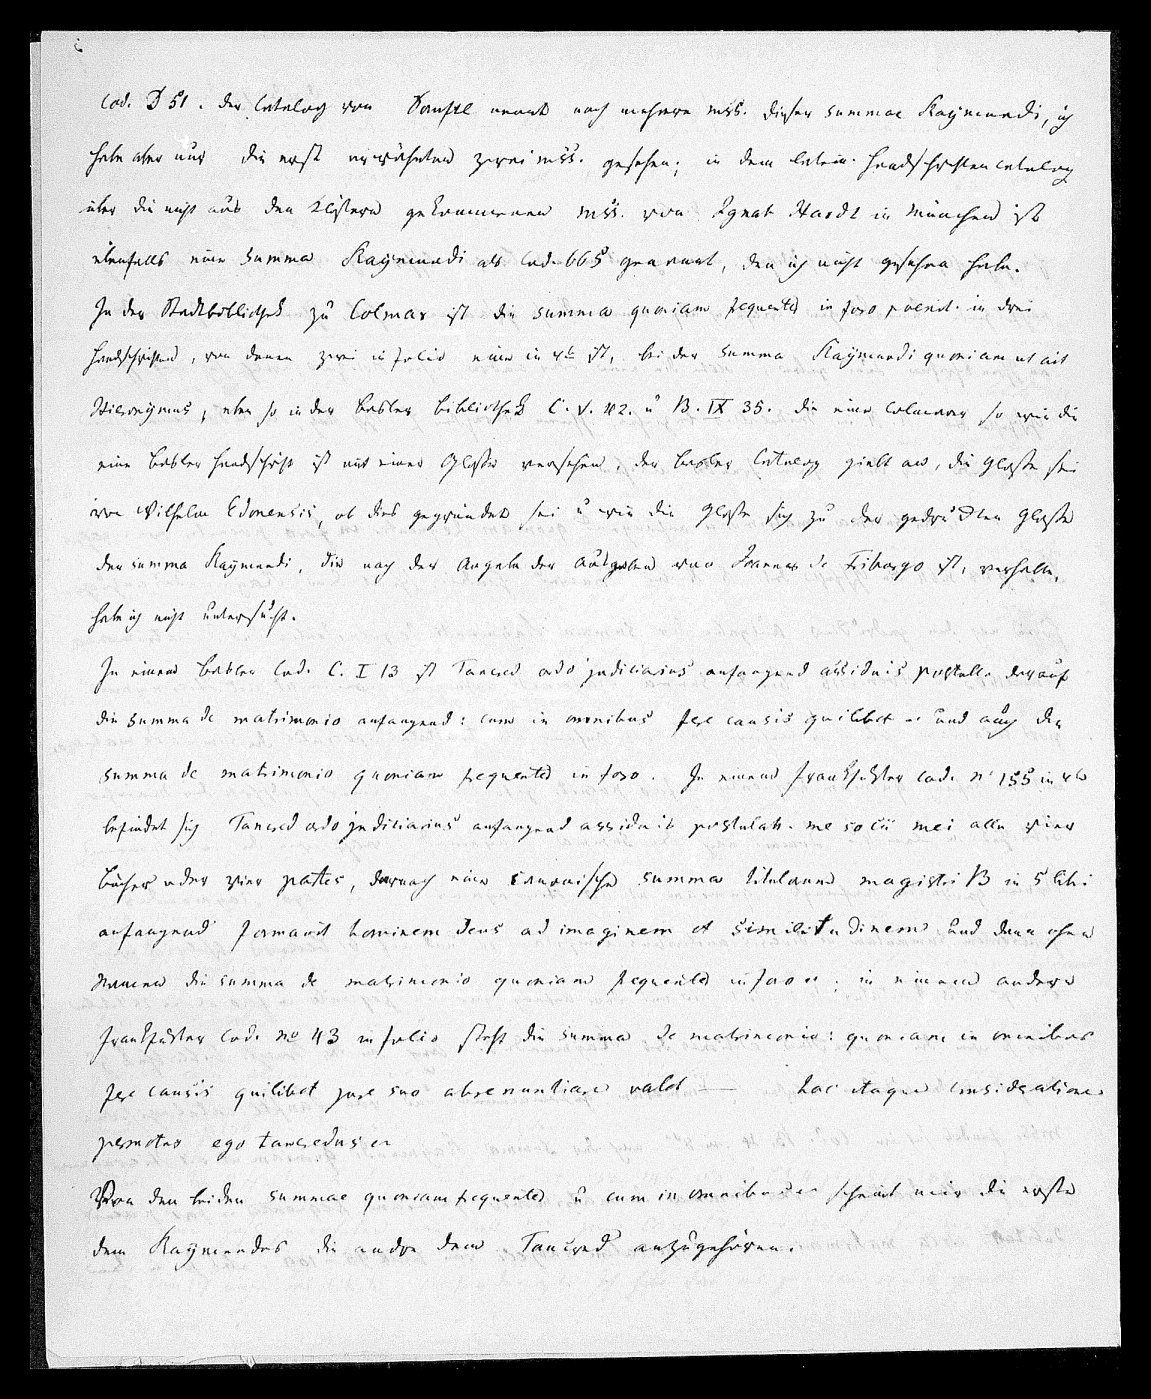 Cod. D 51. der Catalog von Sanftl nennt noch mehrere mss. dieser summae Raymundi, ich
habe aber nur die erst erwähnten zwei mss. gesehen; in dem latein. Handschriftencatalog
über die nicht aus den Klöstern gekommenen mss. von Ignatz Hardt in München ist
ebenfalls eine Summa Raymundi als Cod. 665 genannt, den ich nicht gesehen habe.
In der Stadtbibliothek zu Colmar ist die summa quoniam frequenter in foro poenit. in drei
Handschriften, von denen zwei in folio eine in 4to ist, bei der Summa Raymundi quoniam ut ait
Hieronymus, eben so in der Basler Bibliothek C. V. 42. u B. IX 35. die eine Colmarer so wie die
eine Basler Handschrift ist mit einer Glosse versehen, der Basler Catalog giebt an, die Glosse sei
von Wilhelm Edonensis, ob dies gegründet sei u wie die Glosse sich zu der gedruckten Glosse
der summa Raymundi, die nach der Angabe der Ausgaben von Joannes de Friburgo ist, verhalte,
habe ich nicht untersucht.
In einem Basler Cod. C. I 13 ist Tancred ordo judiciarius anfangend assiduis postulat. darauf
die summa de matrimonio anfangend: cum in omnibus fere causis quilibet und auch der
summa de matrimonio quoniam frequenter in foro. In einem Frankfurter Cod. n° 155 in 4to
befindet sich Tancred ordo judiciarius anfangend assiduis postulat. me socii mei alle vier
Bücher oder vier partes, darnach eine canonische summa titulorum magistri B in 5 libri
anfangend formavit hominem deus ad imaginem et similitudinem und dann ohne
Namen die summa de matrimonio quoniam frequenter in foro; in einem andern
Frankfurter Cod. no 43 in folio steht die summa de matrimonio: quoniam in omnibus
fere causis quilibet jure suo abrenuntiare valet —— hac itaque consideratione
permotus ego tancredus
Von den beiden summae quoniam frequenter u cum in omnibus scheint mir die erste
dem Raymundus die andre dem Tancred anzugehören.